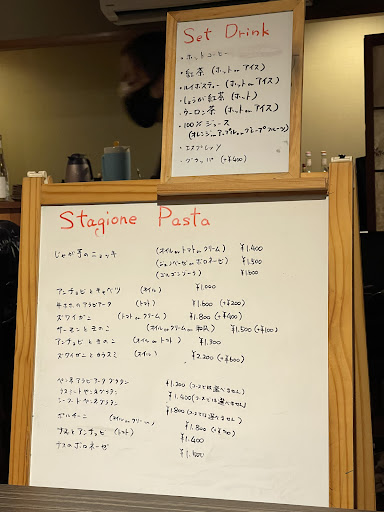 Set Drink
・ホットコーヒー
・紅茶 (ホット or アイス)
・ルイボスティー (ホット or アイス)
・しょうが紅茶 (ホット)
・ウーロン茶 (ホット or アイス)
・100%ジュース
(オレンジ or アップル or グレープフルーツ)
・エスプレッソ
・グラッパ (+¥400)
Stagione Pasta
じゃが芋のニョッキ (オイル or トマト or クリーム) ¥1,400
(ジェノベーゼ or ボロネーゼ) ¥1,500
(ゴルゴンゾーラ) ¥1,600
アンチョビとキャベツ (オイル) ¥1,000
牛ホホのアラビアータ (トマト) ¥1,600 (+¥200)
ズワイガニ (トマト or クリーム) ¥1,800 (+¥400)
サーモンときのこ (オイル or クリーム or 和風) ¥1,500 (+¥100)
アンチョビときのこ (オイル or トマト) ¥1,300
ズワイガニとカラスミ (オイル) ¥2,200 (+¥600)
ペンネアラビアータグラタン ¥1,200 (コースでは選べません)
ペンネグラタン ¥1,400 (コースでは選べません)
シーフードペンネグラタン ¥1,800 (コースでは選べません)
ポルチーニ (オイル or クリーム) ¥1,800
なすとアンチョビ (トマト) ¥1,400
ナスのボロネーゼ